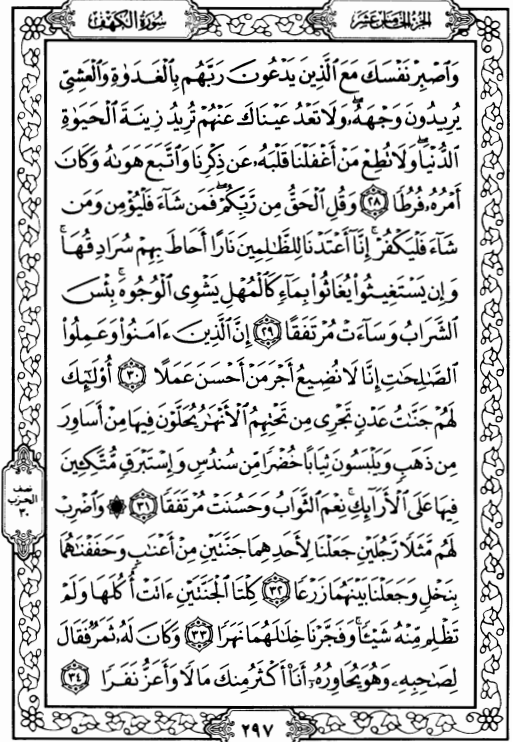 سورة الكهف
الجزء الخامس عشر
وَٱصۡبِرۡ نَفۡسَكَ مَعَ ٱلَّذِينَ يَدۡعُونَ رَبَّهُم بِٱلۡغَدَوٰةِ وَٱلۡعَشِيِّ
يُرِيدُونَ وَجۡهَهُۥۖ وَلَا تَعۡدُ عَيۡنَاكَ عَنۡهُمۡ تُرِيدُ زِينَةَ ٱلۡحَيَوٰةِ
ٱلدُّنۡيَاۖ وَلَا تُطِعۡ مَنۡ أَغۡفَلۡنَا قَلۡبَهُۥ عَن ذِكۡرِنَا وَٱتَّبَعَ هَوَىٰهُ وَكَانَ
أَمۡرُهُۥ فُرُطٗا ٢٨ وَقُلِ ٱلۡحَقُّ مِن رَّبِّكُمۡۖ فَمَن شَآءَ فَلۡيُؤۡمِن وَمَن
شَآءَ فَلۡيَكۡفُرۡۚ إِنَّآ أَعۡتَدۡنَا لِلظَّٰلِمِينَ نَارًا أَحَاطَ بِهِمۡ سُرَادِقُهَاۚ
وَإِن يَسۡتَغِيثُواْ يُغَاثُواْ بِمَآءٖ كَٱلۡمُهۡلِ يَشۡوِي ٱلۡوُجُوهَۚ بِئۡسَ
ٱلشَّرَابُ وَسَآءَتۡ مُرۡتَفَقًا ٢٩ إِنَّ ٱلَّذِينَ ءَامَنُواْ وَعَمِلُواْ
ٱلصَّٰلِحَٰتِ إِنَّا لَا نُضِيعُ أَجۡرَ مَنۡ أَحۡسَنَ عَمَلًا ٣٠ أُوْلَٰٓئِكَ
لَهُمۡ جَنَّٰتُ عَدۡنٖ تَجۡرِي مِن تَحۡتِهِمُ ٱلۡأَنۡهَٰرُ يُحَلَّوۡنَ فِيهَا مِنۡ أَسَاوِرَ
مِن ذَهَبٖ وَيَلۡبَسُونَ ثِيَابًا خُضۡرٗا مِّن سُندُسٖ وَإِسۡتَبۡرَقٖ مُّتَّكِـِٔينَ
فِيهَا عَلَى ٱلۡأَرَآئِكِۚ نِعۡمَ ٱلثَّوَابُ وَحَسُنَتۡ مُرۡتَفَقٗا ٣١ ۞ وَٱضۡرِبۡ
لَهُم مَّثَلٗا رَّجُلَيۡنِ جَعَلۡنَا لِأَحَدِهِمَا جَنَّتَيۡنِ مِنۡ أَعۡنَٰبٖ وَحَفَفۡنَٰهُمَا
بِنَخۡلٖ وَجَعَلۡنَا بَيۡنَهُمَا زَرۡعٗا ٣٢ كِلۡتَا ٱلۡجَنَّتَيۡنِ ءَاتَتۡ أُكُلَهَا وَلَمۡ
تَظۡلِم مِّنۡهُ شَيۡـٔٗاۚ وَفَجَّرۡنَا خِلَٰلَهُمَا نَهَرٗا ٣٣ وَكَانَ لَهُۥ ثَمَرٞ فَقَالَ
لِصَٰحِبِهِۦ وَهُوَ يُحَاوِرُهُۥٓ أَنَا۠ أَكۡثَرُ مِنكَ مَالٗا وَأَعَزُّ نَفَرٗا ٣٤
نصف
الحزب
٣٠
٢٩٧